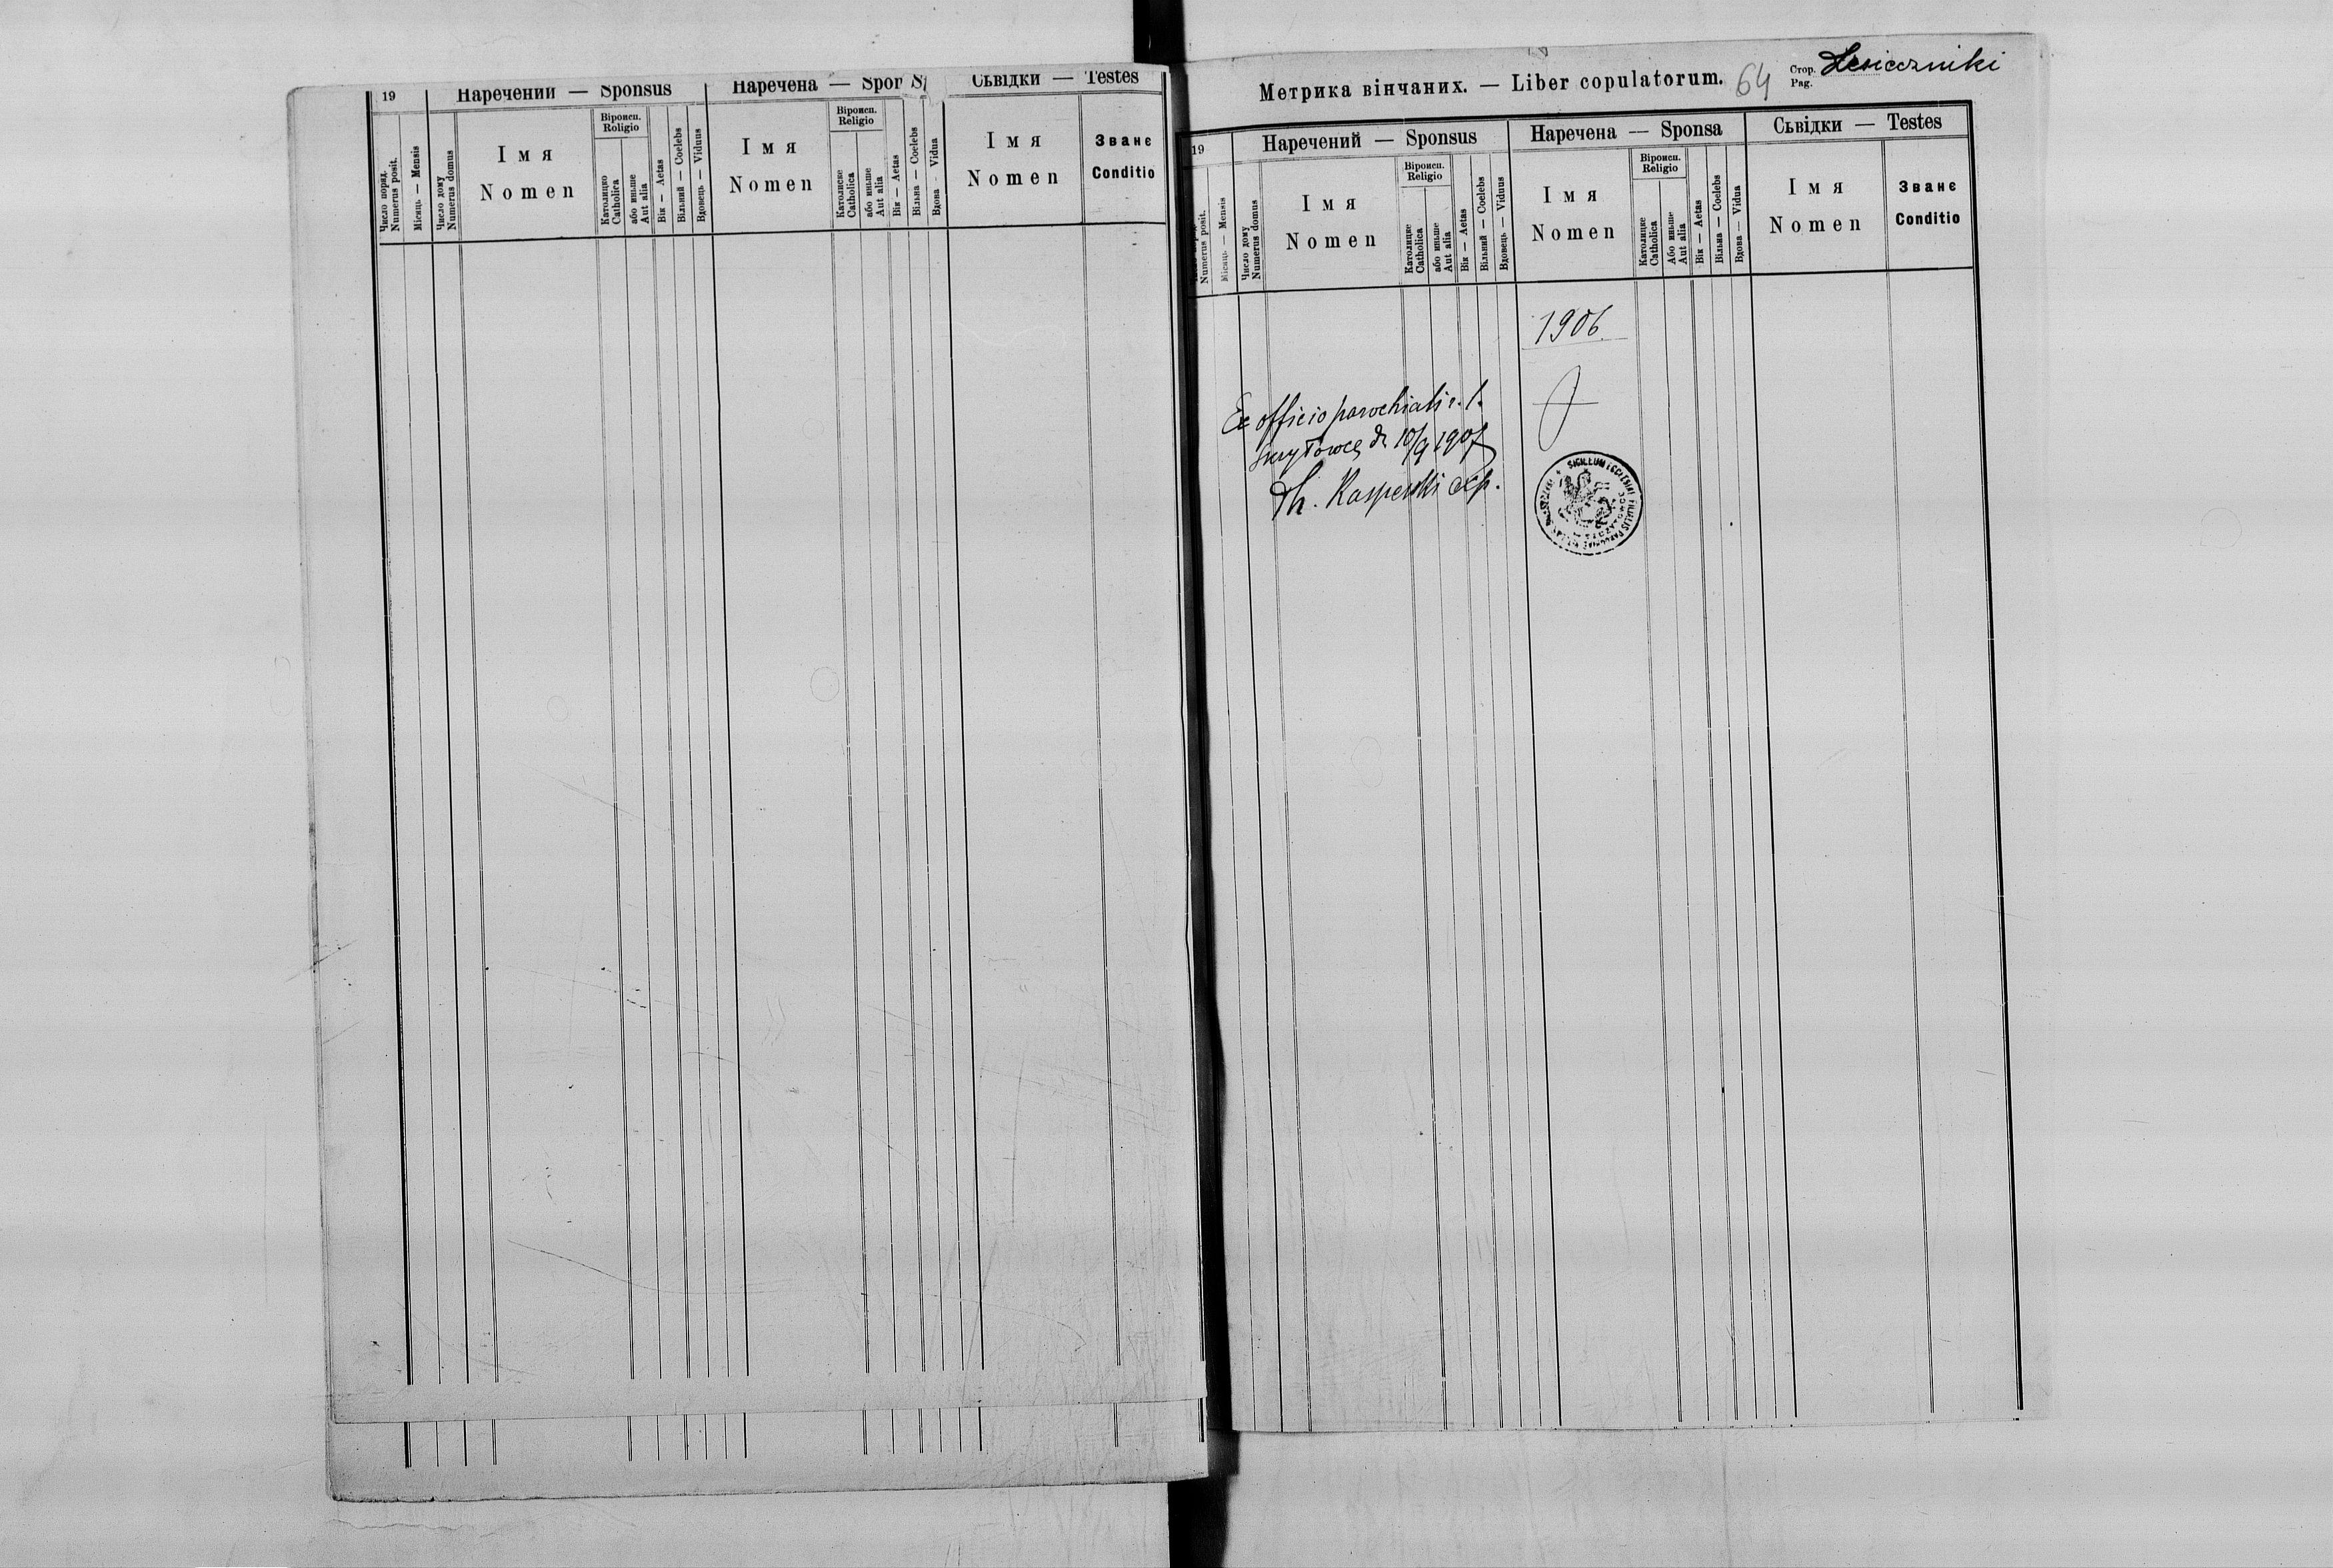 19
Наречений — Sponsus
Наречена — Spon
Сьвідки — Testes
Число поряд.
Numerus posit.
Місяць — Mensis
Число дому
Numerus domus
Імя
Nomen
Віроисп.
Religio
Католицко
Catholica
або иньше
Aut alia
Вік — Aetas
Вільний — Coelebs
Вдовець — Viduus
Імя
Nomen
Віроисп.
Religio
Католиске
Catholica
або иньше
Aut alia
Вік — Aetas
Вільна — Coelebs
Вдова — Vidua
Імя
Nomen
Званє
Conditio
Метрика вінчаних. — Liber copulatorum.
64
Стор.
Pag.
19
Наречений — Sponsus
Наречена — Sponsa
Сьвідки — Testes
Numerus posit.
Місяць — Mensis
Число дому
Numerus domus
Імя
Nomen
Віроисп.
Religio
Католицке
Catholica
або иньше
Aut alia
Вік — Aetas
Вільний — Coelebs
Вдовець — Viduus
Імя
Nomen
Віроисп.
Religio
Католицке
Catholica
Або иньше
Aut alia
Вік — Aetas
Вільна — Coelebs
Вдова — Vidua
Імя
Nomen
Званє
Conditio
1906.
Ex officio parochiali r. l.
10/9 1907
Th. Kasperski exp.
SIGILLUM